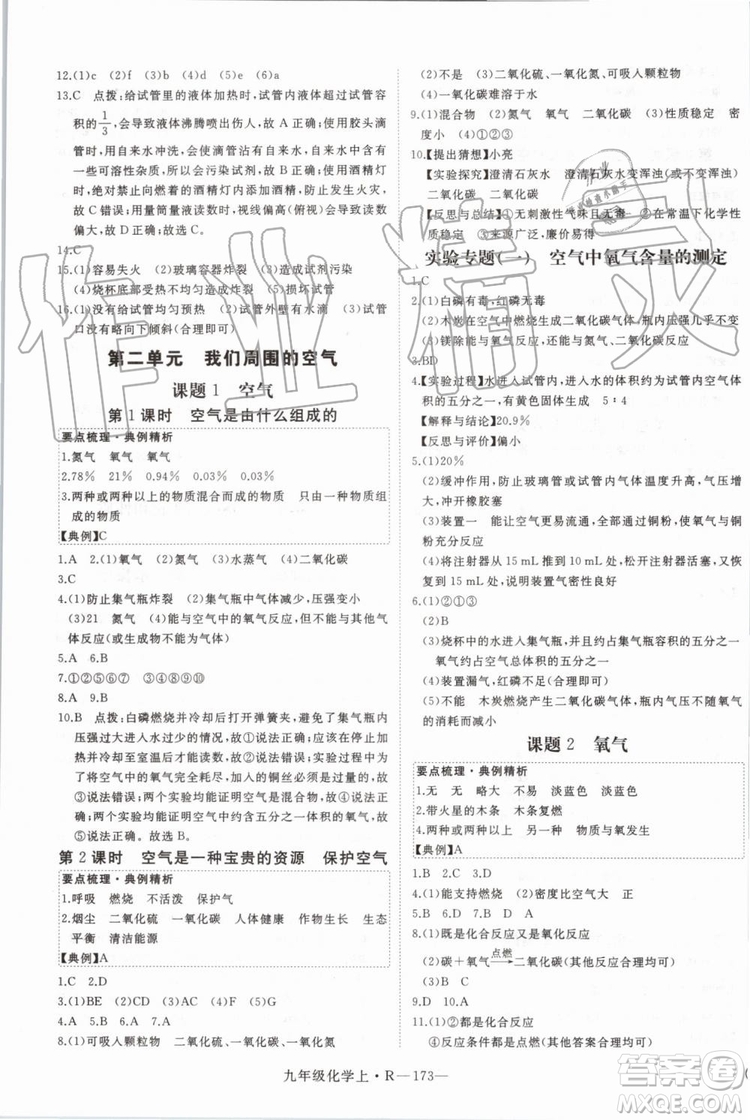 12.(1)c　(2)f　(3)b　(4)d　(5)e　(6)a
13.C　点拨:给试管里的液体加热时,试管里液体的体积超过试管容
积的1/3,会导致液体沸腾喷出伤人,故
直接用自来水冲洗,会导致自来水中含有
一些可溶性杂质,故 B 错误;用酒精灯
燃着的酒精灯内添加酒精,会发生火灾,
故 C 错误;用量筒量液体读数时,视线偏高(俯视)会导致读数
偏大,故 D 正确。故选 C。
14.C
15.(1)容易失火　(2)玻璃容器炸裂　(3)造成试剂污染
(4)烧杯底部受热不均匀炸裂　(5)损坏试管
16.(1)没有给试管均匀预热　(2)试管外壁有水滴　(3)试管
口没有略向下倾斜(合理即可)
第二单元　我们周围的空气
课题 1　空气
第 1 课时　空气是由什么组成的
要点梳理·典例精析
1.氮气　氧气　氧气
2.78%　21%　0.94%　0.03%　0.03%
3.两种或两种以上的物质混合而成的物质　只由一种物质组
成的物质
【典例】C
1.A　2.(1)氧气　(2)氮气　(3)水蒸气　(4)二氧化碳
3.C
4.(1)防止集气瓶炸裂　(2)集气瓶中气体减少,压强变小
(3)21　氮气　(4)能与空气中的氧气反应,不能与其他气
体反应(或生成物不能为气体)
5.A　6.B
7.①②⑤⑥⑦　③④⑧⑨⑩
8.D　9.B
10.B　点拨:白磷燃烧并冷却后打开弹簧夹,避免了集气瓶内
压强过大进入水过少的情况,①说法正确;实验 2 中要来
回多次缓慢推动注射器,②说法错误;实验 1 的白磷过量
将空气中的氧气完全耗尽,加入的铜丝必须是过量的,
③说法正确;两个实验均能证明空气是混合物,④说法正
确;两个实验均能证明空气中氧气的含量,⑤说法正确。
故①③④⑤说法正确。故选 B。
第 2 课时　空气是一种宝贵的资源　保护空气
要点梳理·典例精析
1.呼吸　燃烧　不活泼　保护气
2.烟尘　二氧化硫　一氧化碳　人体健康　作物生长　生态
平衡　清洁能源
【典例】A
1.C　2.D
3.(1)BE　(2)CD　(3)AF　(4)BDEH　(5)G
4.B　5.C　6.D
7.A
8.(1)可吸入颗粒物　二氧化硫、一氧化碳、二氧化氮
(2)不是　(3)二氧化硫、一氧化氮、可吸入颗粒物
(4)一氧化碳难溶于水
9.(1)混合物　(2)氮气　氧气　二氧化碳　(3)性质稳定　密
度小　(4)①③②
10.【提出猜想】小亮
【实验探究】澄清石灰水　澄清石灰水变浑浊(或不变浑浊)
二氧化碳　二氧化碳
【反思与总结】①无刺激性气味且无毒　②常温下化学性
质稳定　③来源广泛,廉价易得
实验专题(一)　空气中氧气含量的测定
1.C
2.(1)白磷有毒,红磷无毒
(2)木炭在空气中燃烧生成二氧化碳气体,瓶内压强几乎不变
(3)镁除能与氧气反应外,还能与氮气、二氧化碳反应
3.BD
4.【实验过程】水进入试管内,进入的水体积约为试管内空气
体积的五分之一,有黄色固体生成　5∶4
【解释与结论】20.9%
【反思与评价】偏小
5.(1)15%
(2)缓冲作用,防止玻璃管或试管内气体温度升高,气压变大,
冲开橡胶塞
(3)装置一　能使空气更易流通,全部通过铜粉,空气与铜
粉充分发生反应
(4)将注射器从 15 mL 推到 10 mL 处,松开注射器活塞,又
恢复到 15 mL 处,说明装置气密性良好
6.(1)②①③
(3)烧杯中的水进入集气瓶,且约占集气瓶容积的五分之一
氧气约占空气总体积的五分之一
(4)装置漏气,红磷的量不足等(合理即可)
(5)不能　木炭燃烧产生二氧化碳气体,瓶内气压不因氧气
的消耗而减小
课题 2　氧气
要点梳理·典例精析
1.无　无　略大　不易　淡蓝色　淡蓝色
2.带火星的木条　木条复燃
4.两种或两种以上　另一种　物质与氧发生
【典例】A
1.B　2.C　3.D　4.A
5.(1)能支持燃烧　(2)密度比空气大　正
6.B　7.D
8.(1)既是化合反应又是氧化反应
(2)碳＋氧气—点燃→二氧化碳(其他答案合理均可)
(3)C
9.D　10.A
11.(1)②都是化合反应　③都是氧化反应
④反应条件都是点燃(其他合理答案均可)
九年级化学上·R—173—